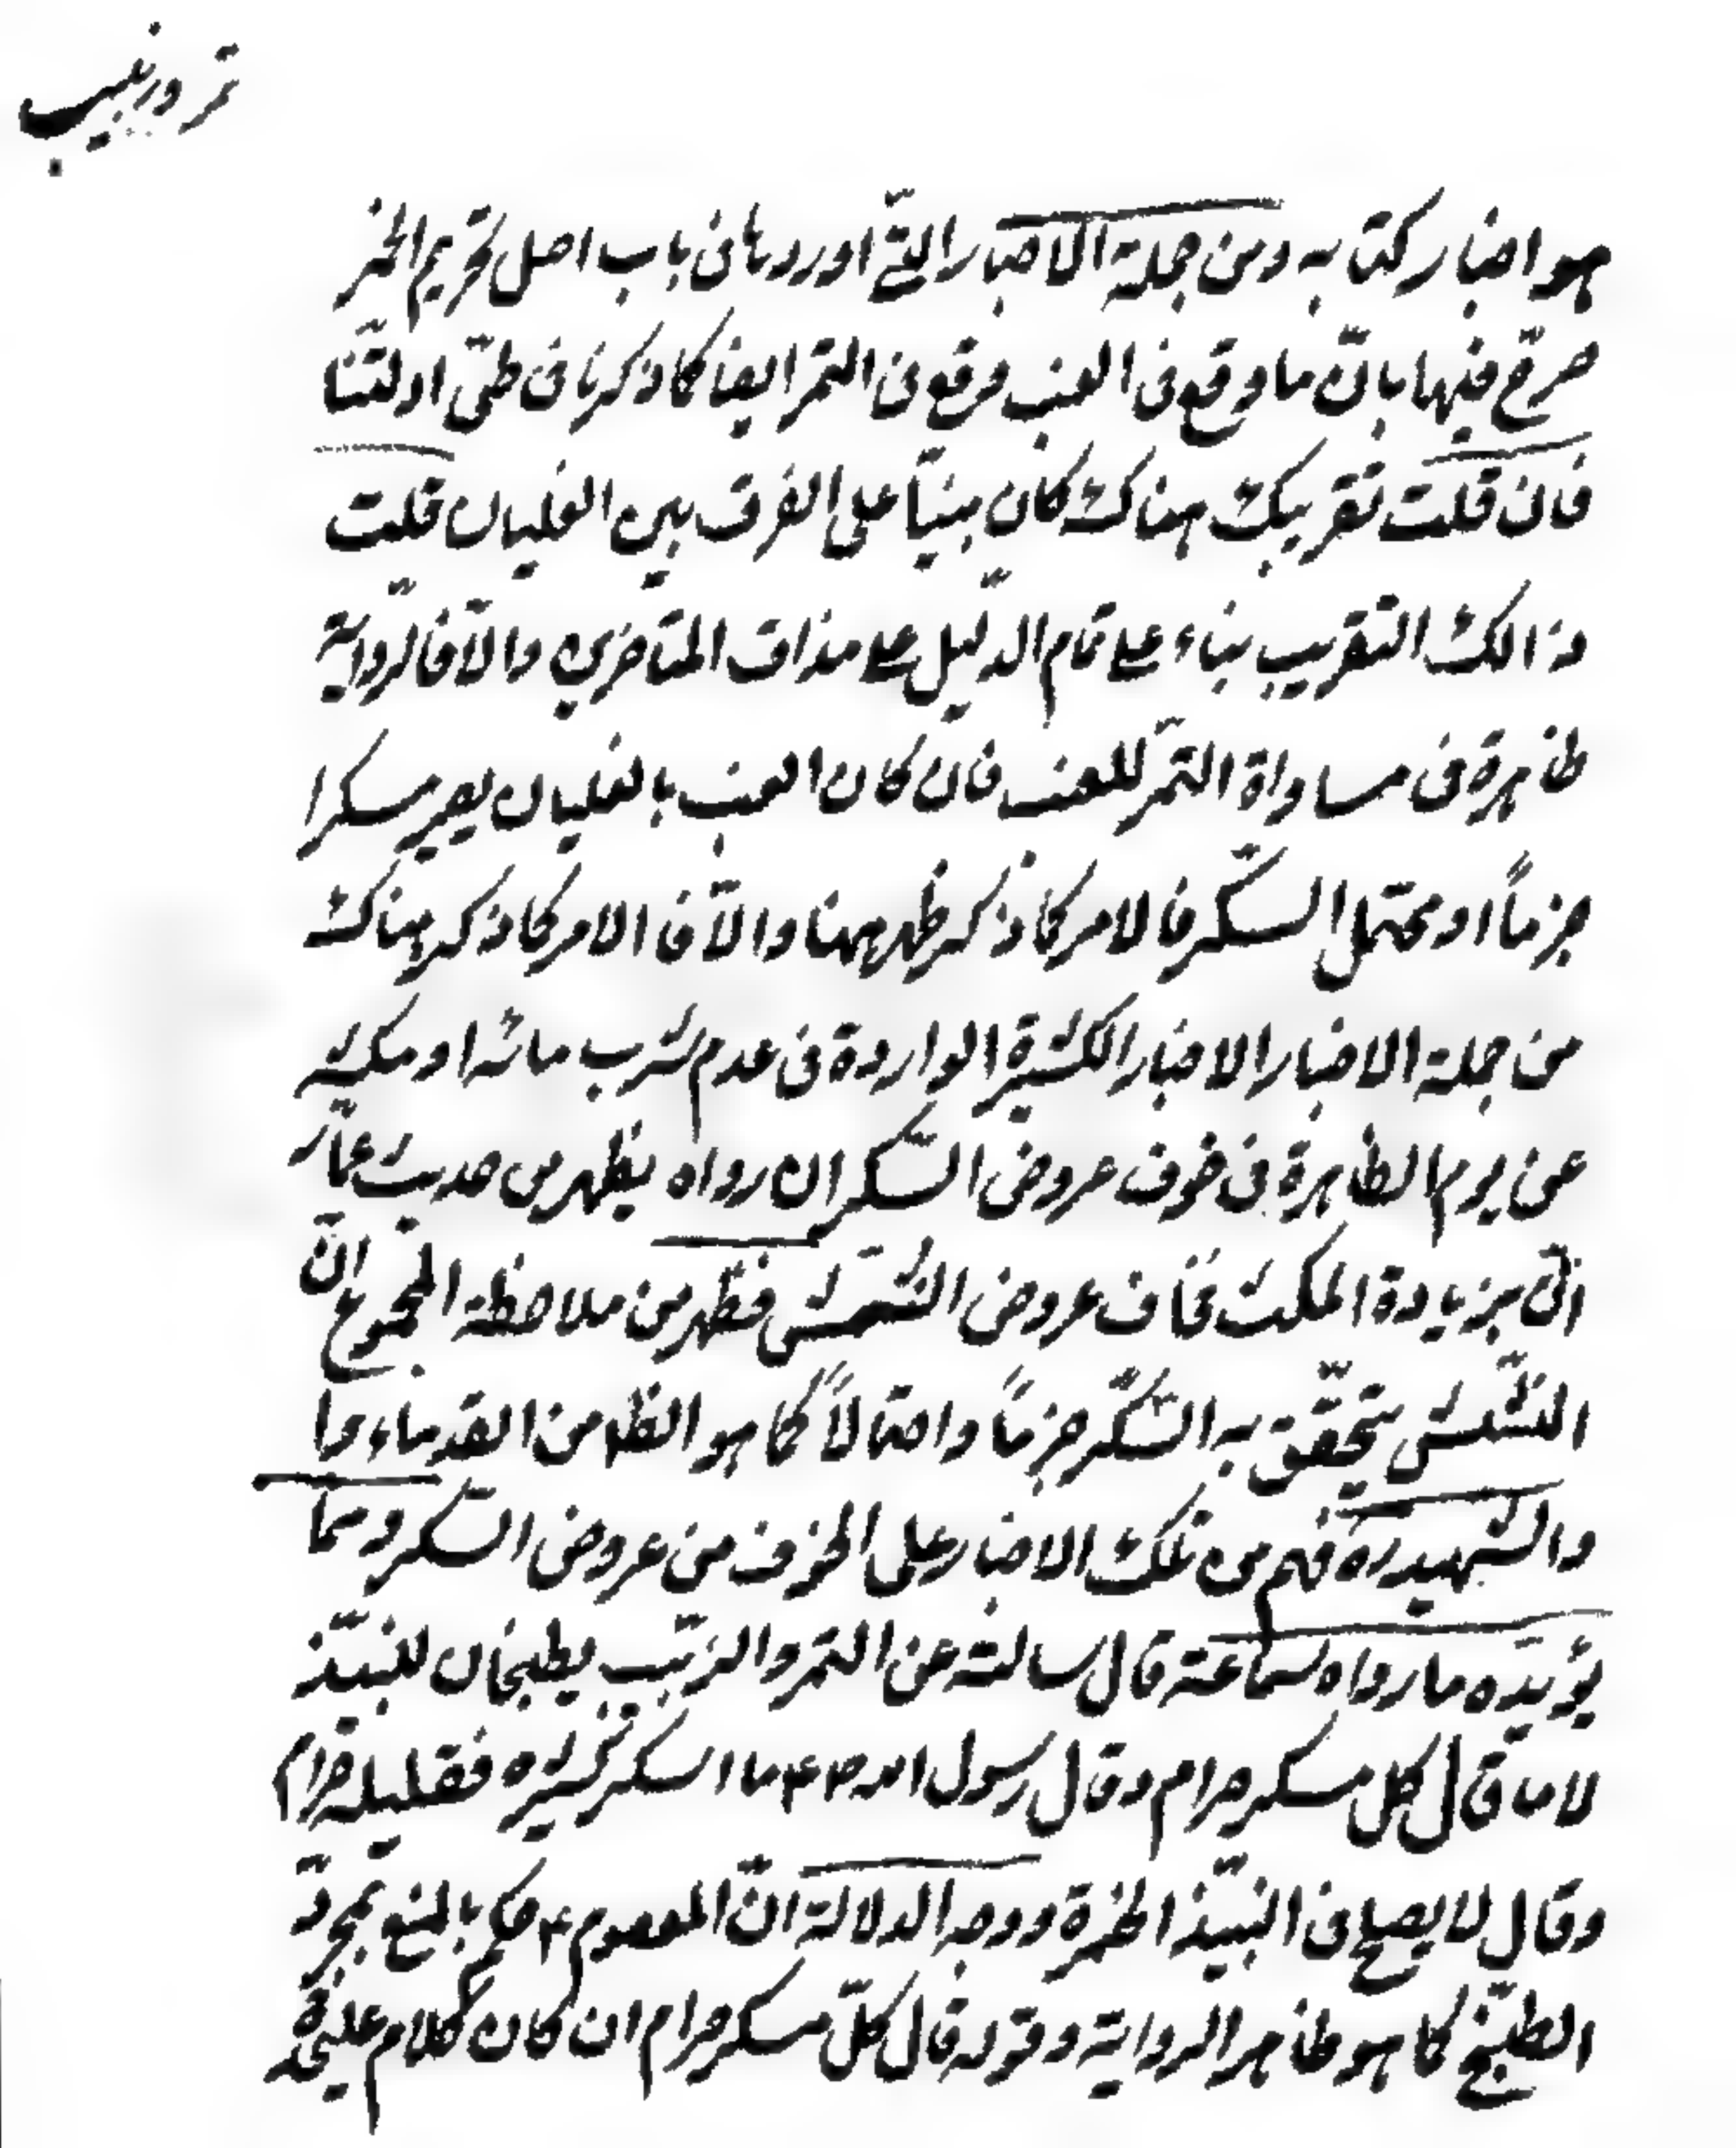 هو اخبار كتابه ومن جملة الاخبار الّتى اوردها فى باب اصل تحريم الخمر
صرّح فيها بانّ ما وقع فى العنب وقع فى التمر ايضا كما ذكرنا فى طىّ ادلّتنا
فان قلت تقريبك هناك كان مبنيّا على الفرق بين الغليان قلت
ذالك التقريب بناء على تمام الدليل على مذاق المتاخرين والّا فالرّواية
ظاهرة فى مساواة التمر للعنب فان كان العنب بالغليان يصير مسكرا
جزماً او محتمل السّكر فالامر كما ذكر ظهر ههنا والّا فالامر كما ذكر هناك
من جملة الاخبار الاخبار الكثيرة الواردة فى عدم شرب مائه او مكثه
عن يوم الظاهرة فى خوف عروض السّكر ان رواه يظهر من حديث عمّار
انّ بزيادة المكث تخاف عروض النّشيش فظهر من ملاحظة المجموع انّ
النّشيش يتحقّق به السّكر جزماً واحتمالاً كما هو الظ من القدماء وما
والشّهيد ره فهم من تلك الاخبار على الخوف من عروض السّكر وممّا
يؤيّده ما رواه سماعة قال سالته عن التمر والزّبيب يطبخان للنبيّذ
لا ما قال كل مسكر حرام وقال رسول الله ص ع ما اسكر كثيره فقليله حرام
وقال لا يصلح فى النبيّذ الخمرة ووجه الدلالة انّ المعصوم ع حكم بالمنع بمجرّد
الطبخ كما هو ظاهر الرواية وقوله قال كلّ مسكر حرام ان كان كلام عليحدة